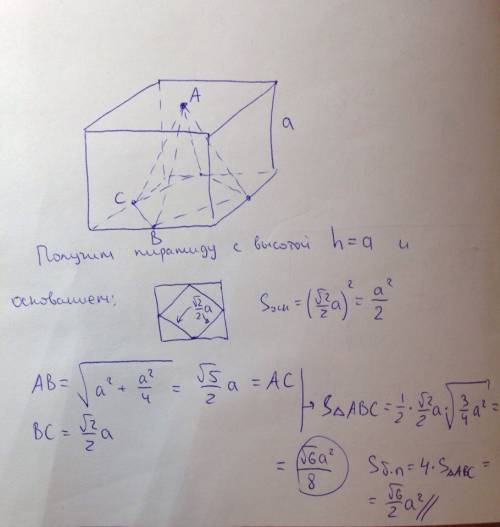 A
a
C
B
Получим пирамиду с высотой h=a и
основанием:
√2/2 a
Sосн = (√2/2 a)² = a²/2
AB = √(a² + a²/4) = √5/2 a = AC
BC = √2/2 a
→ S△ABC = 1/2 · √2/2 a · √(3/4 a²) =
= √6a²/8
Sб.п = 4 · S△ABC =
= √6/2 a² //